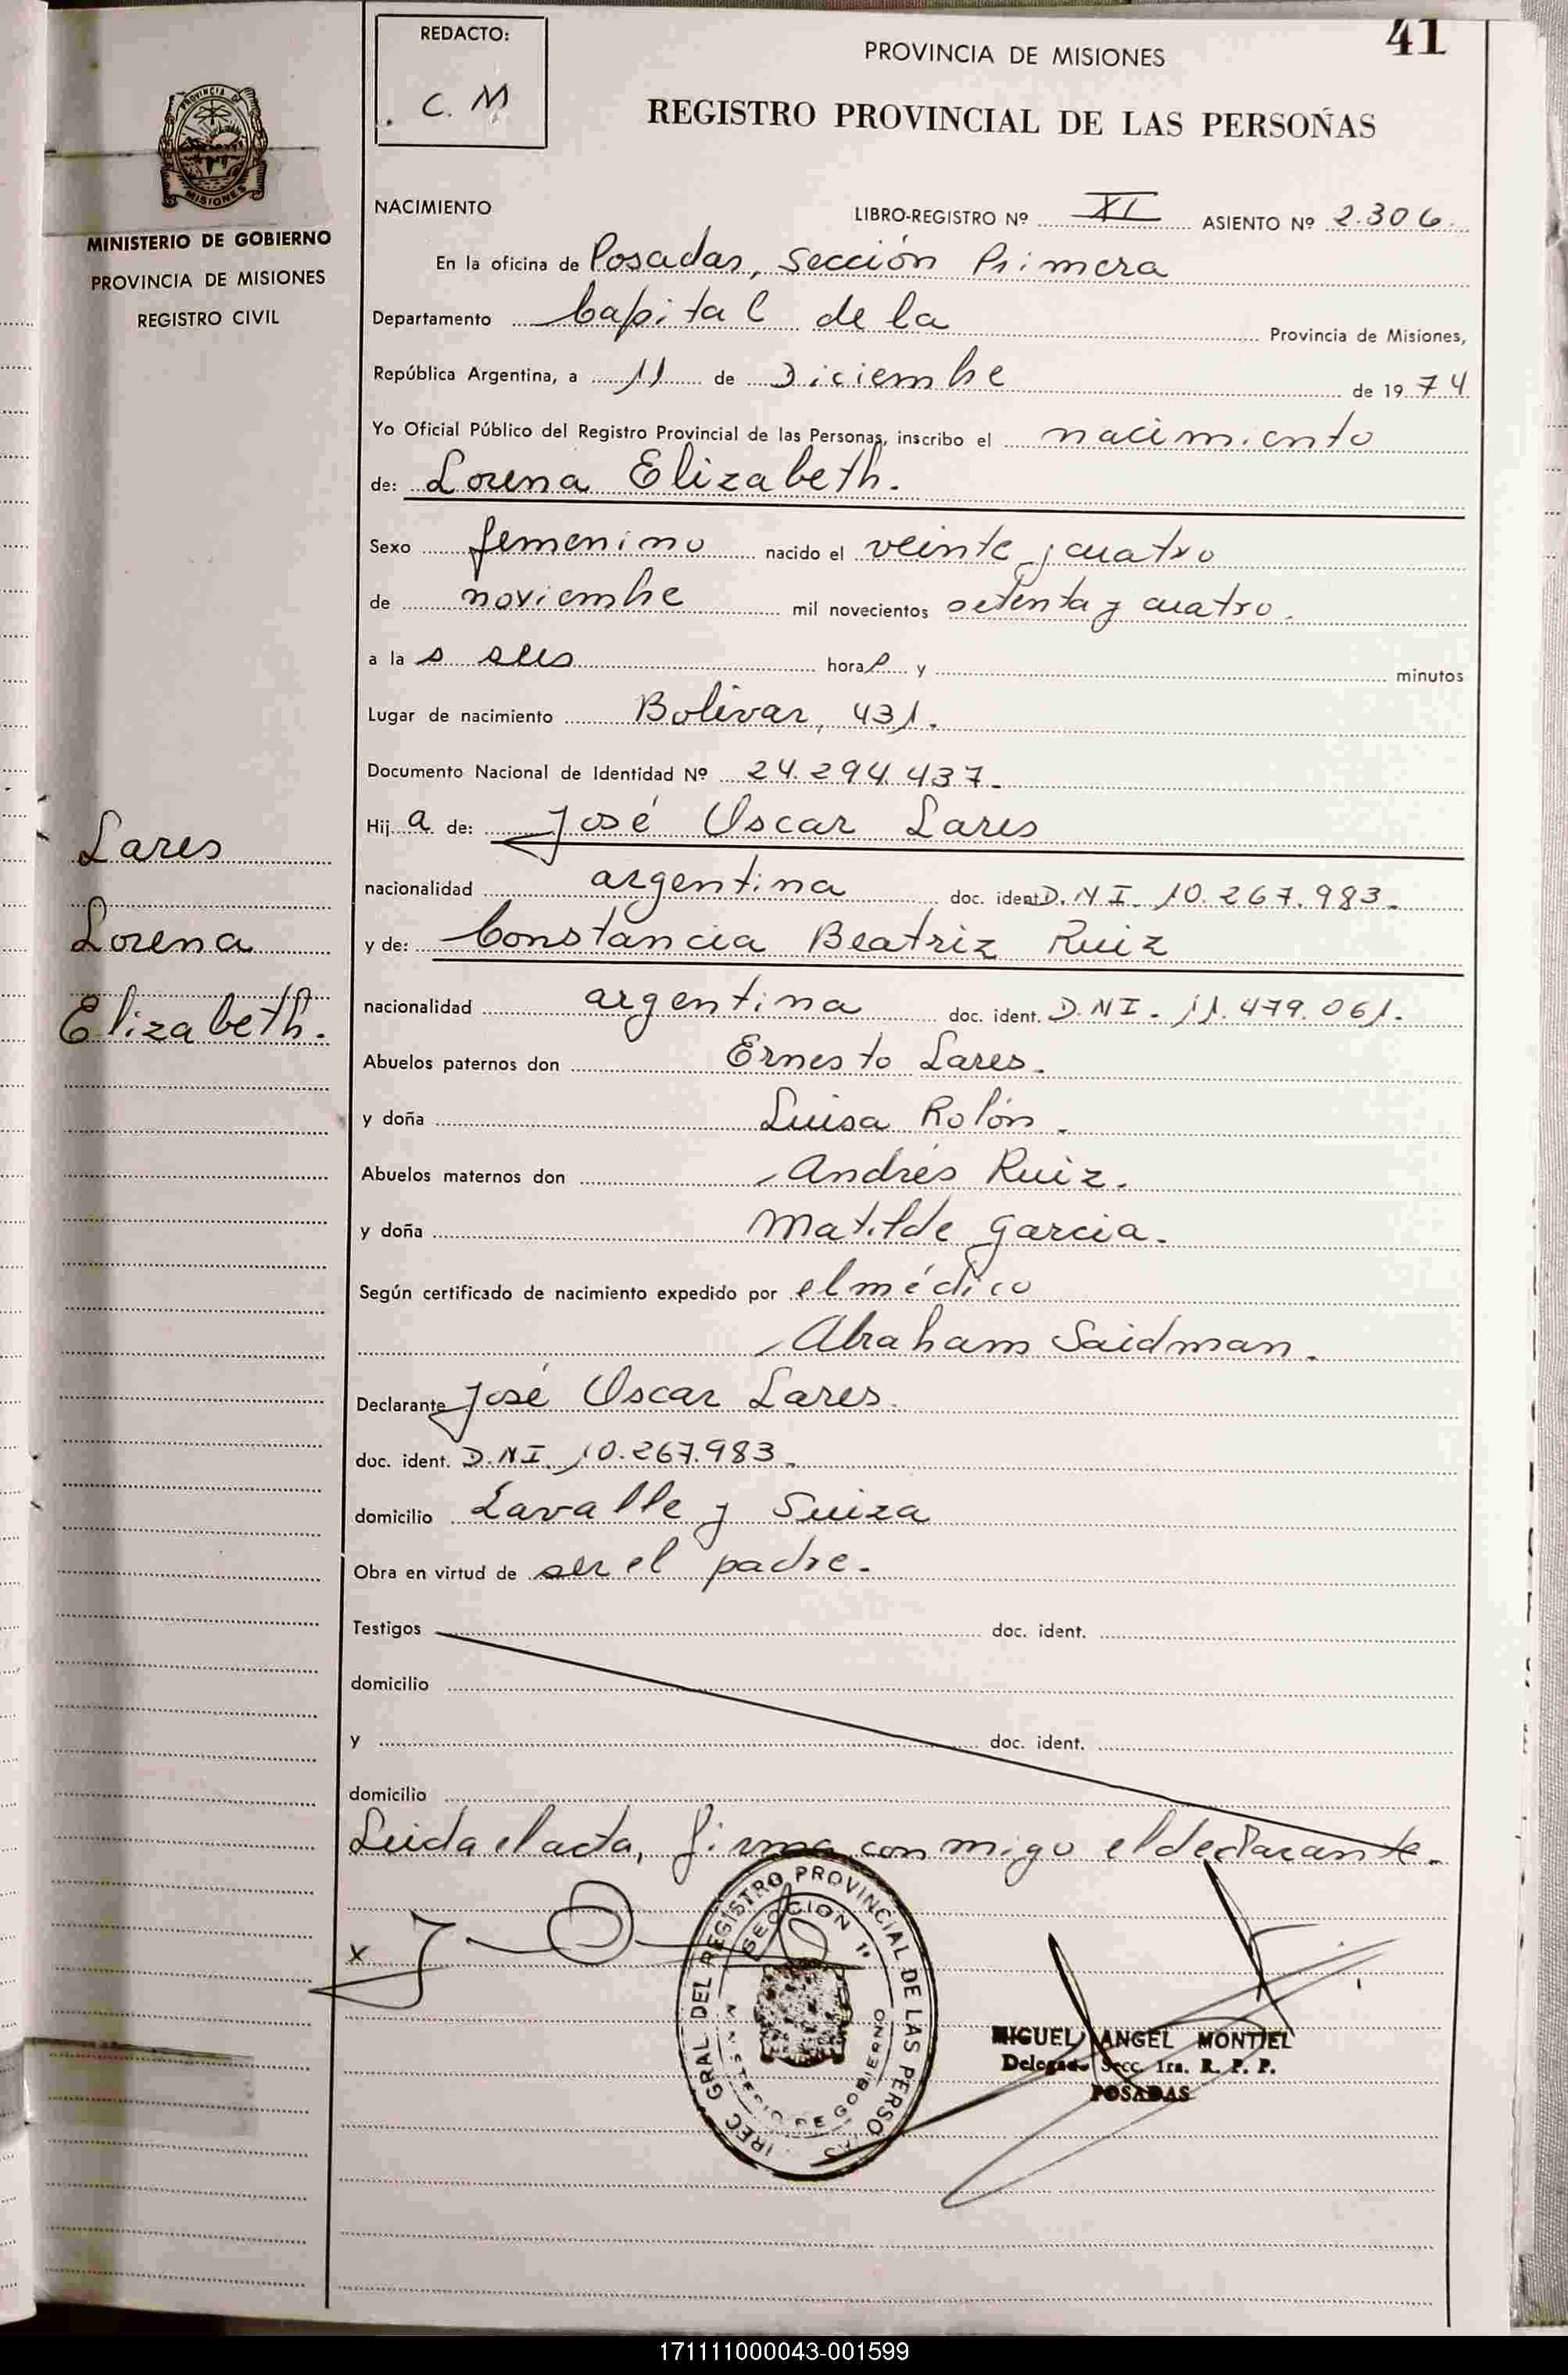 41
REDACTO:
C. M
PROVINCIA DE MISIONES
REGISTRO PROVINCIAL DE LAS PERSOÑAS
PROVINCIA DE
MISIONES
MINISTERIO DE GOBIERNO
PROVINCIA DE MISIONES
REGISTRO CIVIL
NACIMIENTO LIBRO-REGISTRO Nº XI ASIENTO Nº 2.306.
En la oficina de Posadas, Sección Primera
Departamento Capital de la Provincia de Misiones,
República Argentina, a 11 de Diciembre de 1974
Yo Oficial Público del Registro Provincial de las Personas, inscribo el nacimiento
de: Lorena Elizabeth.
Sexo femenino nacido el veinte y cuatro
de noviembre mil novecientos setenta y cuatro.
a la s seis hora s y minutos
Lugar de nacimiento Bolívar, 431.
Documento Nacional de Identidad Nº 24.294.437.
Hij a de: José Oscar Lares
nacionalidad argentina doc. ident D.N I. 10.267.983.
y de: Constancia Beatriz Ruiz
nacionalidad argentina doc. ident. D.NI. 11.479.061.
Abuelos paternos don Ernesto Lares.
y doña Luisa Rolón.
Abuelos maternos don Andrés Ruiz.
y doña Matilde Garcia.
Según certificado de nacimiento expedido por el médico
Abraham Saidman.
Declarante José Oscar Lares.
doc. ident. D.NI. 10.267.983.
domicilio Lavalle y Suiza
Obra en virtud de ser el padre.
Testigos doc. ident.
domicilio
y doc. ident.
domicilio
Leida el acta, firma conmigo el declarante.
Lares
Lorena
Elizabeth.
x
IREC GRAL DEL REGISTRO PROVINCIAL DE LAS PERSO AS
SECCION 1ª
MINISTERIO DE GOBIERNO
MIGUEL ANGEL MONTIEL
Delegado Secc. 1ra. R. P. P.
POSADAS
171111000043-001599